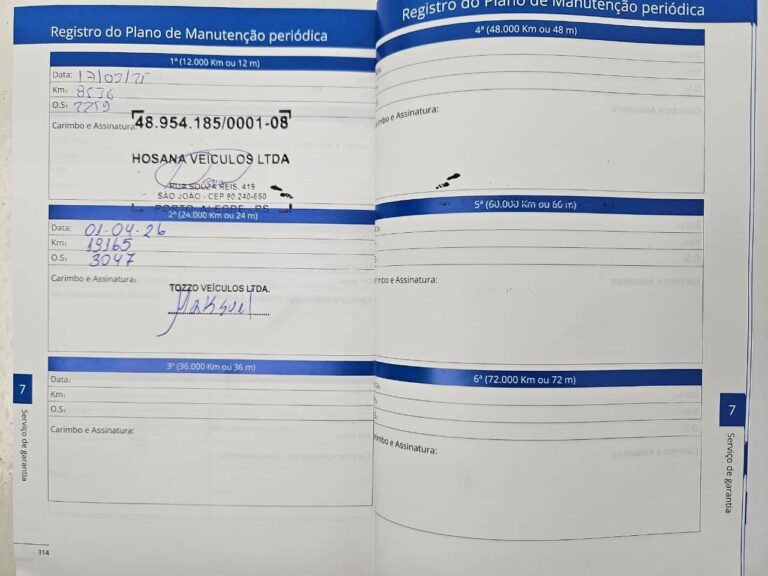 Registro do Plano de Manutenção periódica
1ª (12.000 Km ou 12 m)
Data: 17/03/25
Km: 8536
O.S: 2259
Carimbo e Assinatura:
48.954.185/0001-08
HOSANA VEÍCULOS LTDA
RUA SOUZA REIS, 419
SÃO JOÃO - CEP 90.240-650
PORTO ALEGRE - RS
2ª (24.000 Km ou 24 m)
Data: 01-04-26
Km: 19165
O.S: 3047
Carimbo e Assinatura:
TOZZO VEÍCULOS LTDA.
3ª (36.000 Km ou 36 m)
Data:
Km:
O.S:
Carimbo e Assinatura:
7
Serviço de garantia
314
Registro do Plano de Manutenção periódica
4ª (48.000 Km ou 48 m)
Carimbo e Assinatura:
5ª (60.000 Km ou 60 m)
Carimbo e Assinatura:
6ª (72.000 Km ou 72 m)
Carimbo e Assinatura:
7
Serviço de garantia